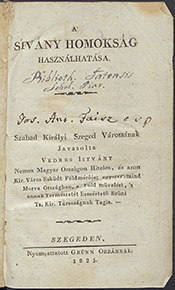 A
SIVÁNY HOMOKSÁG
HASZNÁLHATÁSA.
Biblioth. Tatensis
Schol. Piar.
Jos. Ant.
Szabad Királyi Szeged Városának
Javasolta
VEDRES ISTVÁN
Nemes Magyar Országon Hiteles, és azon
Kir. Város Esküdt Földmérője; egyszersmind
Morva Országban, a Föld művelést, 's
annak Természetét Esmértető Brüni
Ts. Kir. Társaságnak Tagja. —
SZEGEDEN,
Nyomattatott GRÜNN ORBÁNNÁL
1825.